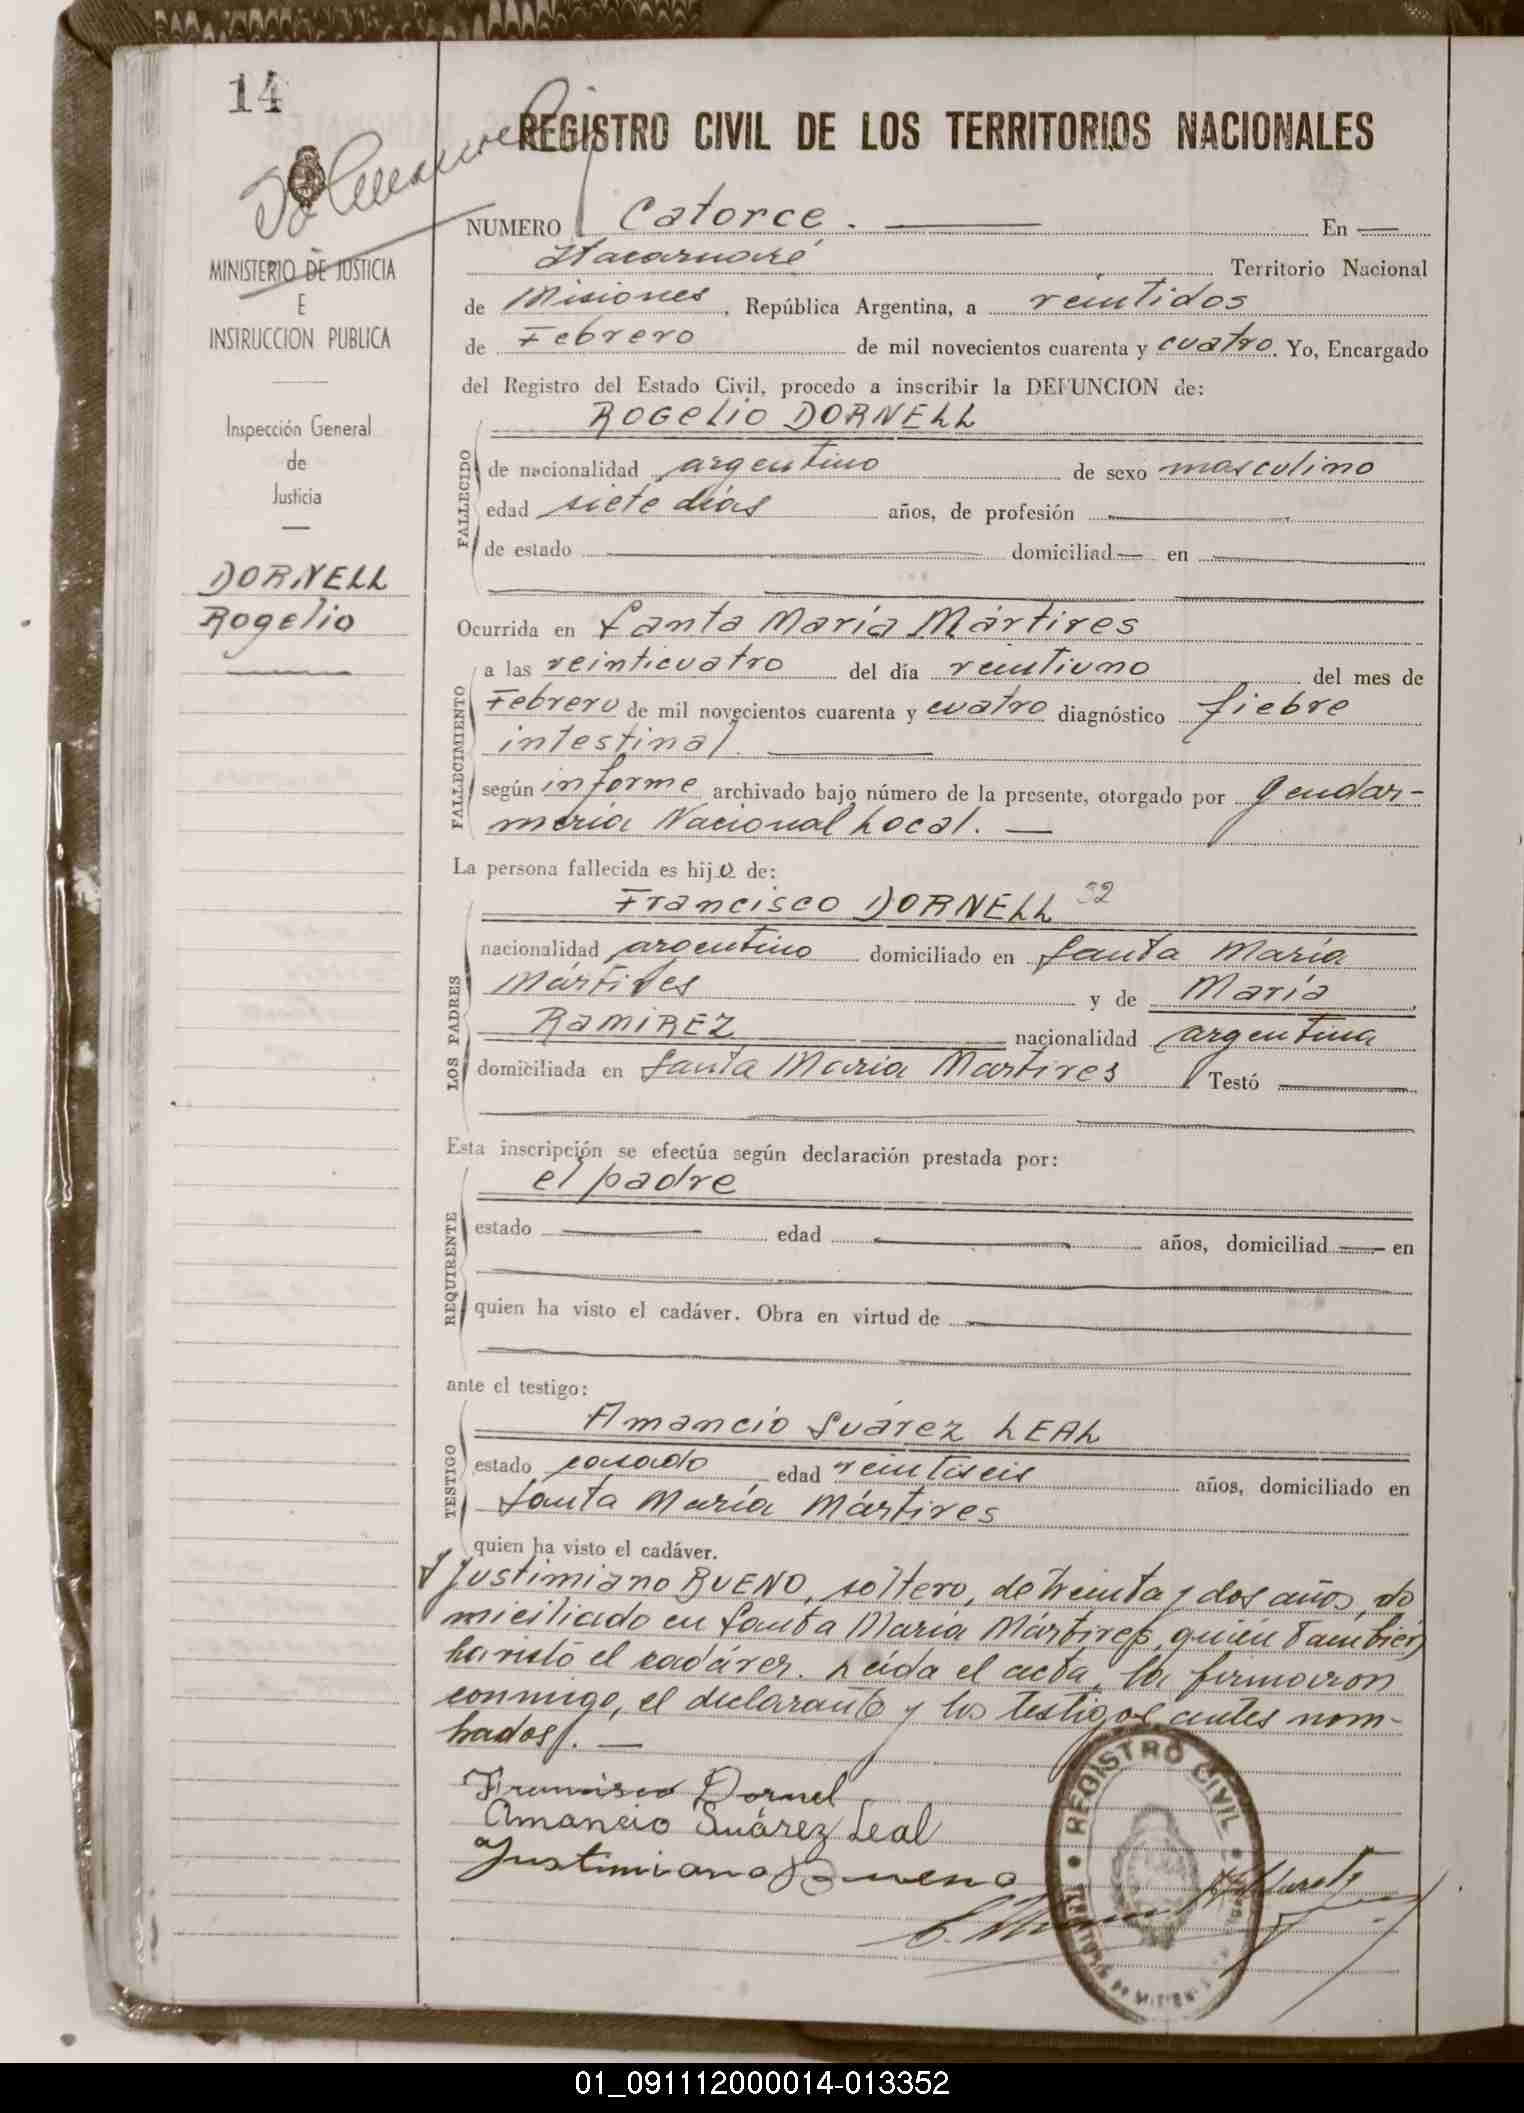 14
REGISTRO CIVIL DE LOS TERRITORIOS NACIONALES
MINISTERIO DE JUSTICIA
E
INSTRUCCION PUBLICA
Inspección General
de
Justicia
DORNELL
Rogelio
NUMERO Catorce. En
Itacaruaré Territorio Nacional
de Misiones, República Argentina, a veintidos
de Febrero de mil novecientos cuarenta y cuatro. Yo, Encargado
del Registro del Estado Civil, procedo a inscribir la DEFUNCION de:
ROGELIO DORNELL
FALLECIDO
de nacionalidad argentino de sexo masculino
edad siete días años, de profesión
de estado domiciliad en
Ocurrida en Santa María Mártires
FALLECIMIENTO
a las veinticuatro del día veintiuno del mes de
Febrero de mil novecientos cuarenta y cuatro diagnóstico fiebre
intestinal.
según informe archivado bajo número de la presente, otorgado por Gendar-
meria Nacional Local.
La persona fallecida es hijo de:
Francisco DORNELL 32
LOS PADRES
nacionalidad argentino domiciliado en Santa María
Mártires y de María
RAMIREZ nacionalidad argentina
domiciliada en Santa Maria Martires Testó
Esta inscripción se efectúa según declaración prestada por:
el padre
REQUIRENTE
estado edad años, domiciliad en
quien ha visto el cadáver. Obra en virtud de
ante el testigo:
Amancio Suárez LEAL
TESTIGO
estado casado edad veintiseis años, domiciliado en
Santa María Mártires
quien ha visto el cadáver.
y Justimiano BUENO, soltero, de treinta y dos años, do
miciliado en Santa María Mártires, quién también
ha visto el cadáver. Leida el acta, la firmaron
conmigo, el declarante y los testigos antes nom-
brados.
Francisco Dornel
Amancio Suárez Leal
Justimiano Bueno
REGISTRO CIVIL
01_091112000014-013352